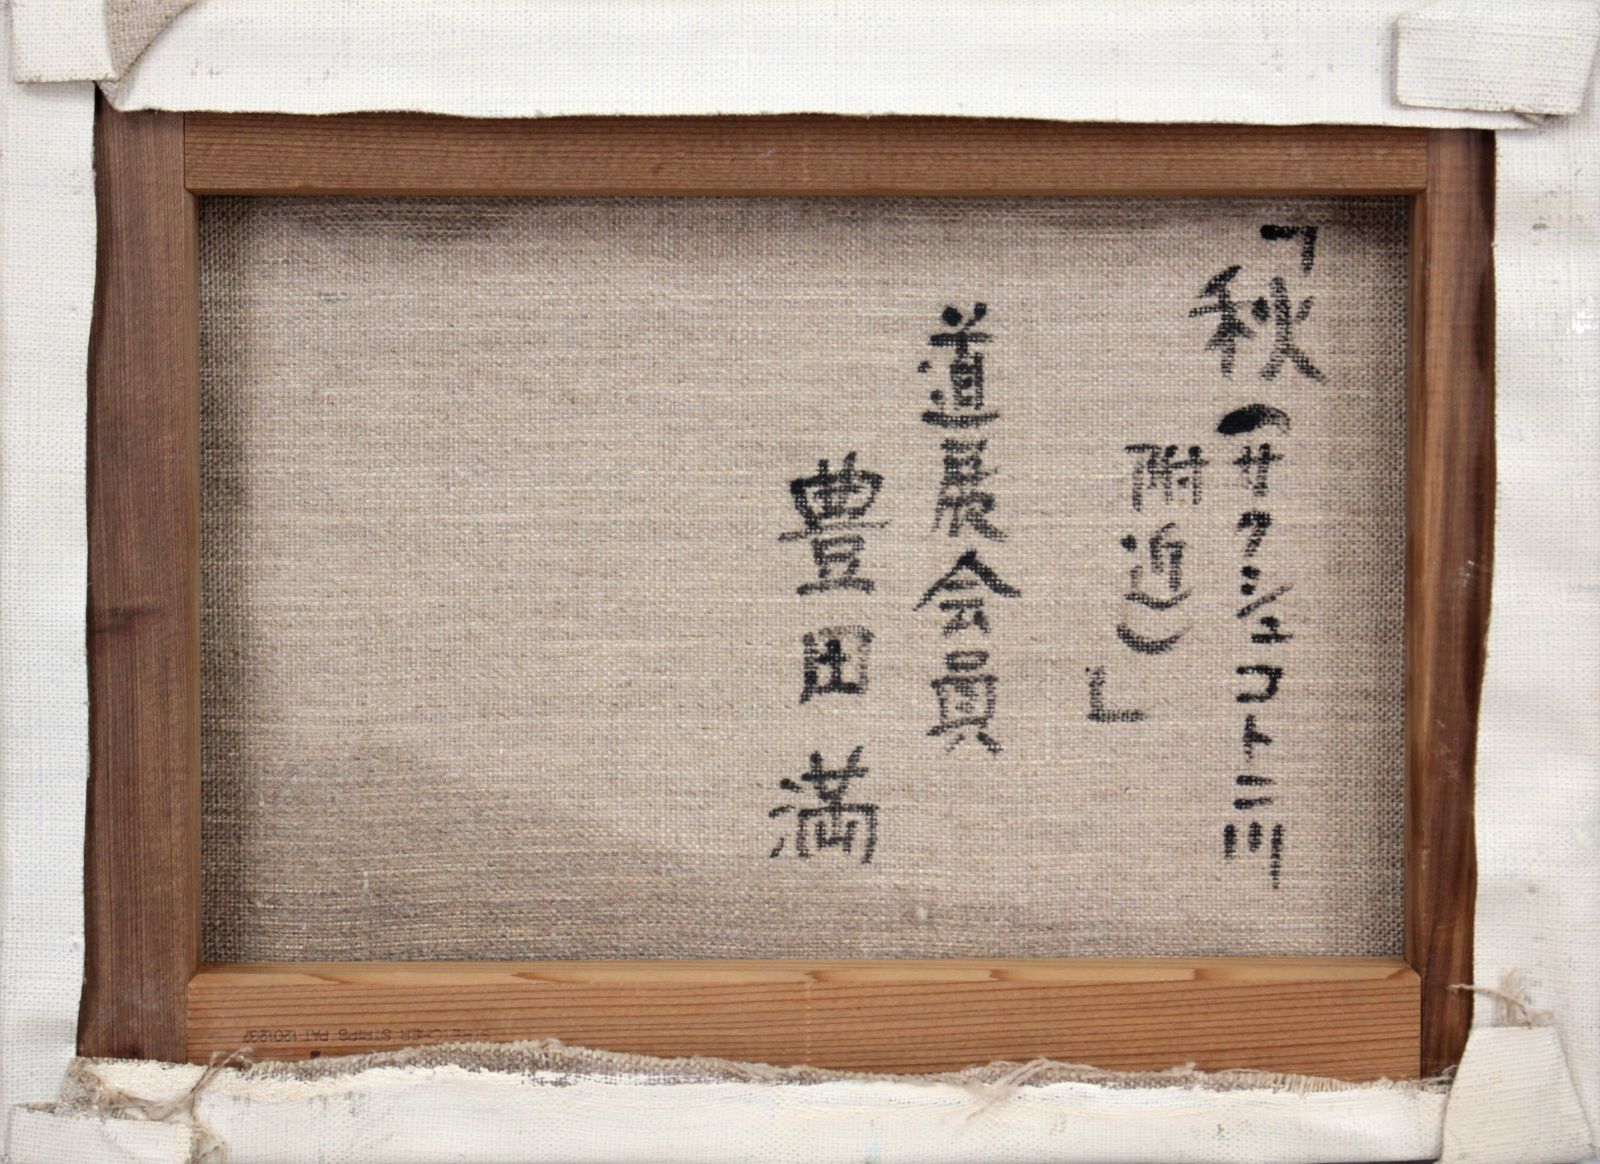 「秋(サクシュコトニ川
附近)」
道展会員
豊田満
STRETCHER STRIPS PAT 1201237